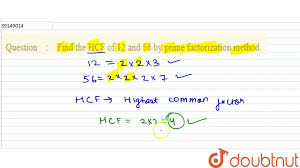 39149014
Question : Find the HCF of 12 and 56 by prime factorization method.
12 = 2×2×3 ✓
56 = 2×2×2×7 ✓
HCF → Highest common factor
HCF = 2×2 = 4 ✓
doubtnut